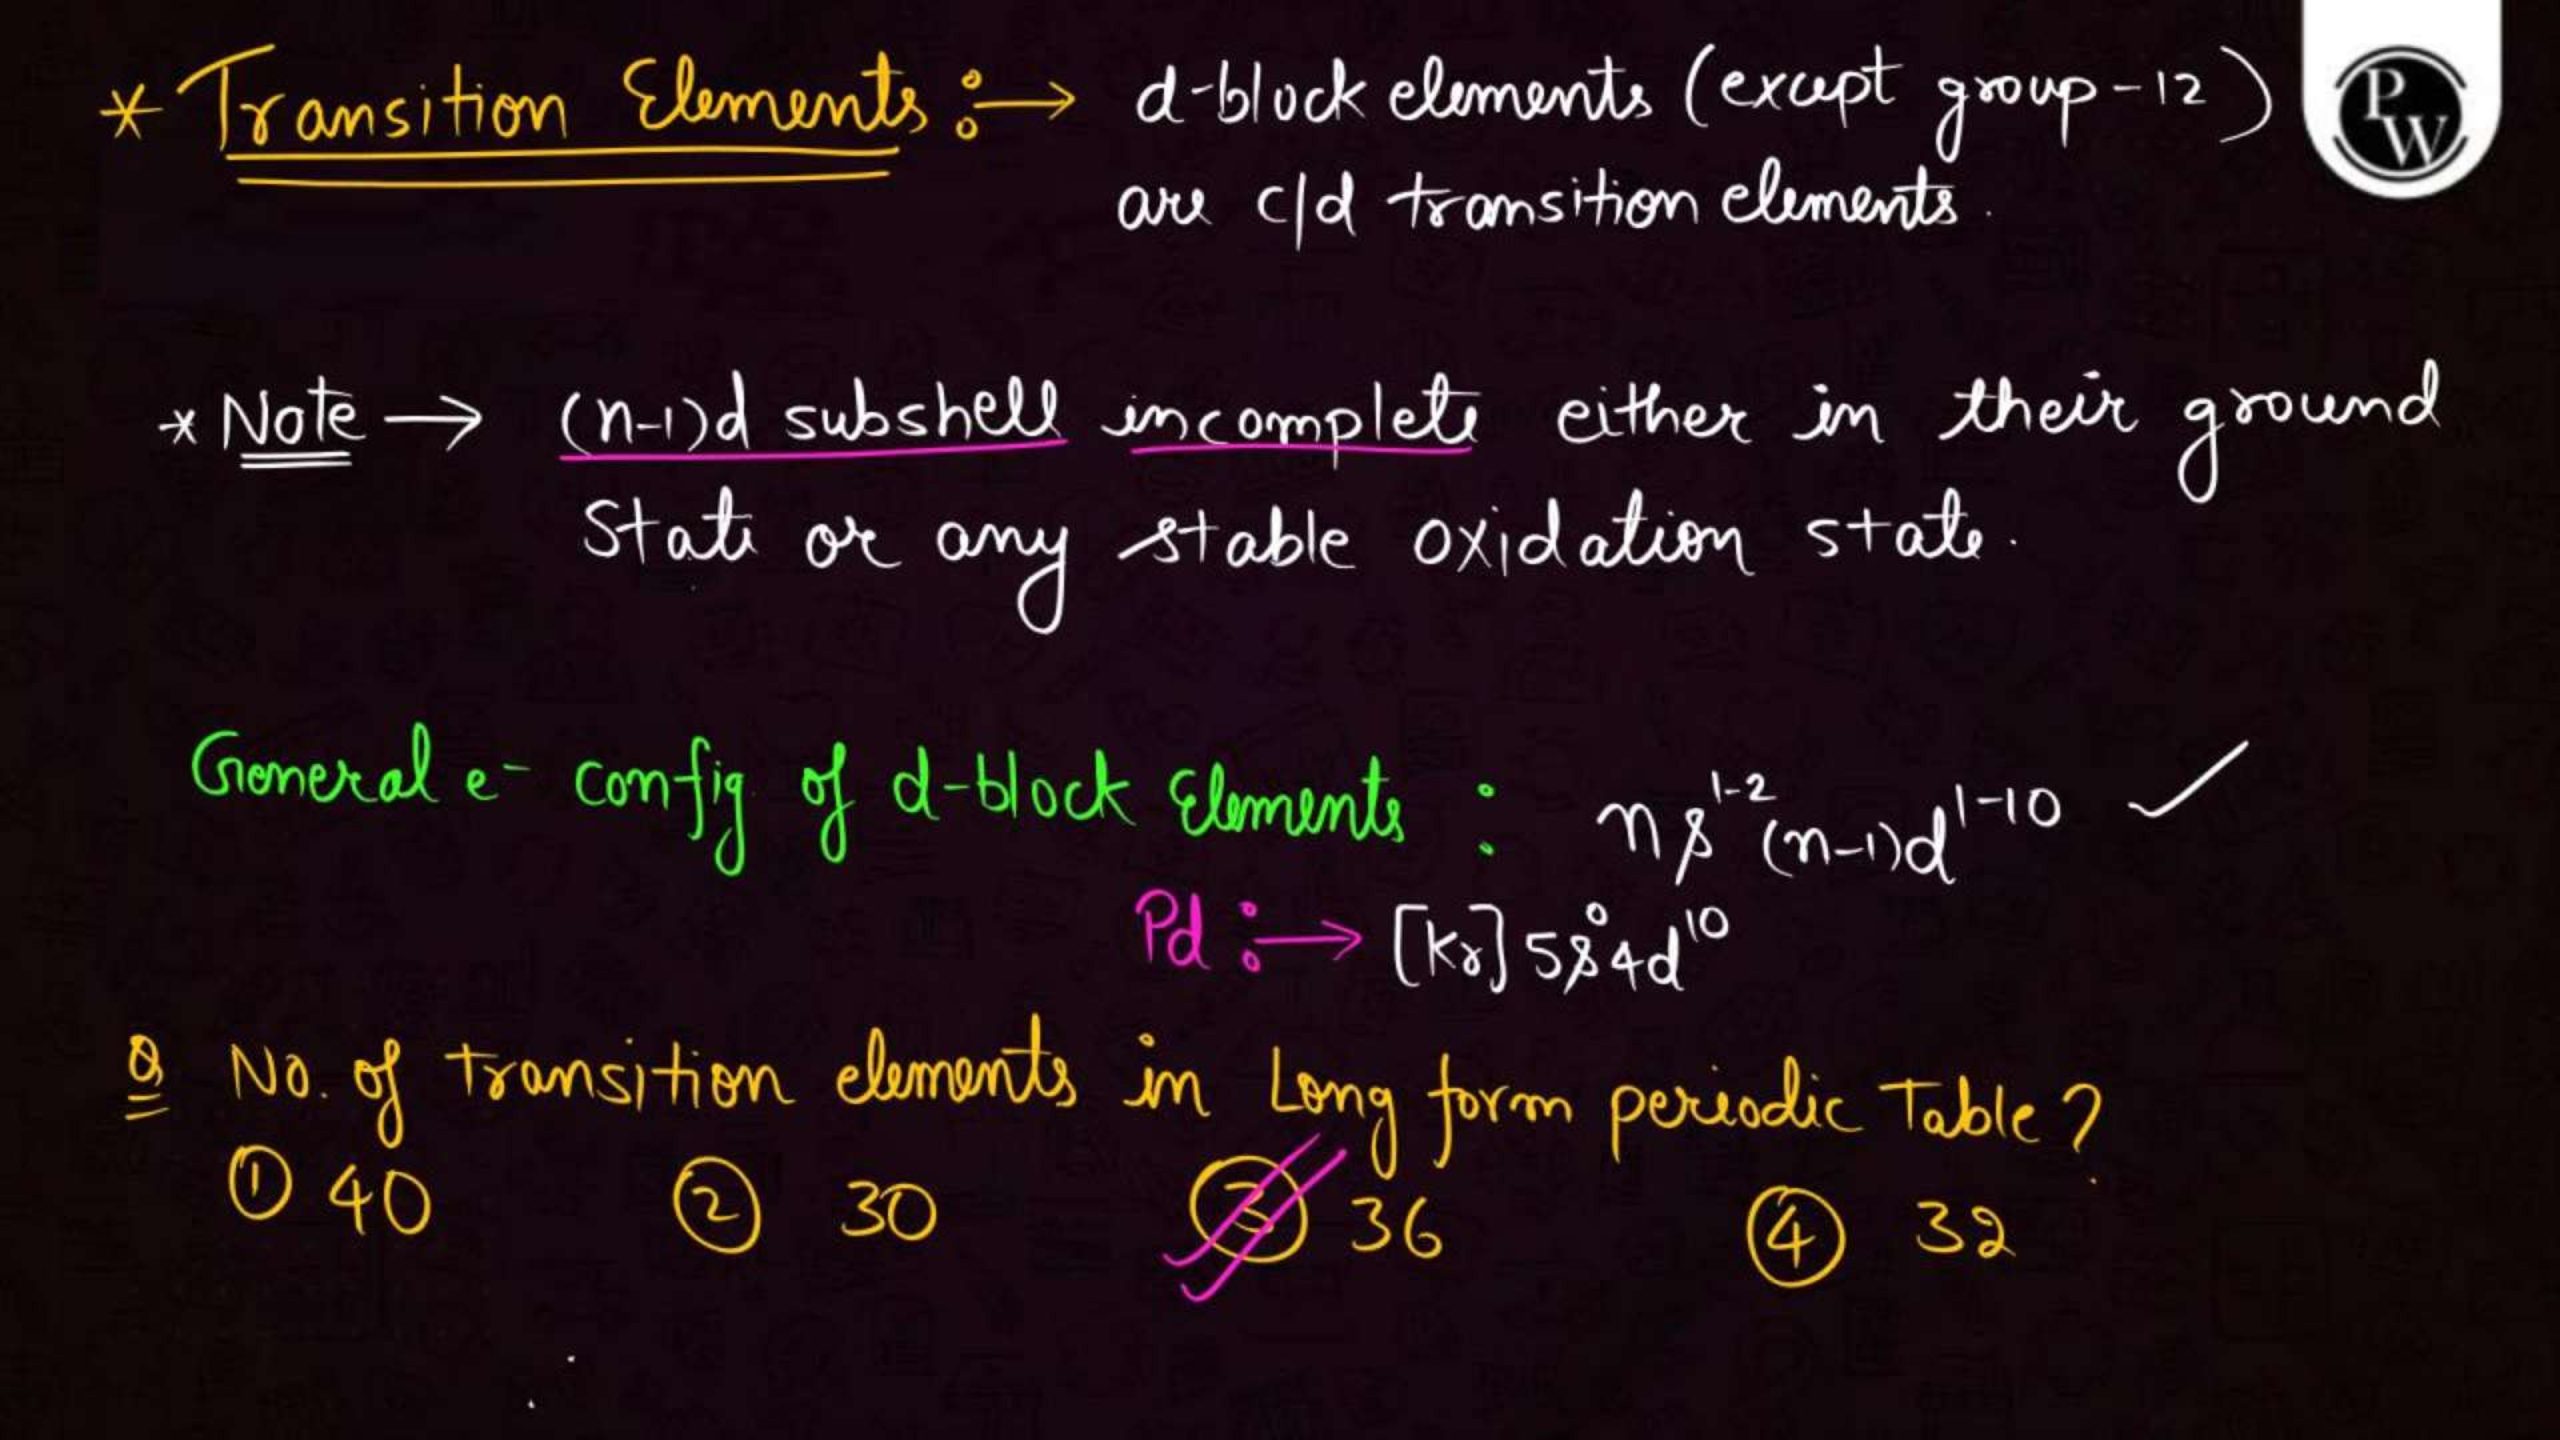 * Transition Elements :→ d-block elements (except group-12)
are c/d transition elements.
PW
* Note → (n-1)d subshell incomplete either in their ground
State or any stable oxidation state.
General e⁻ config. of d-block Elements : ns¹⁻² (n-1)d¹⁻¹⁰ ✓
Pd :→ [Kr] 5s⁰4d¹⁰
Q No. of transition elements in Long form periodic Table?
① 40 ② 30 ③ 36 ④ 32